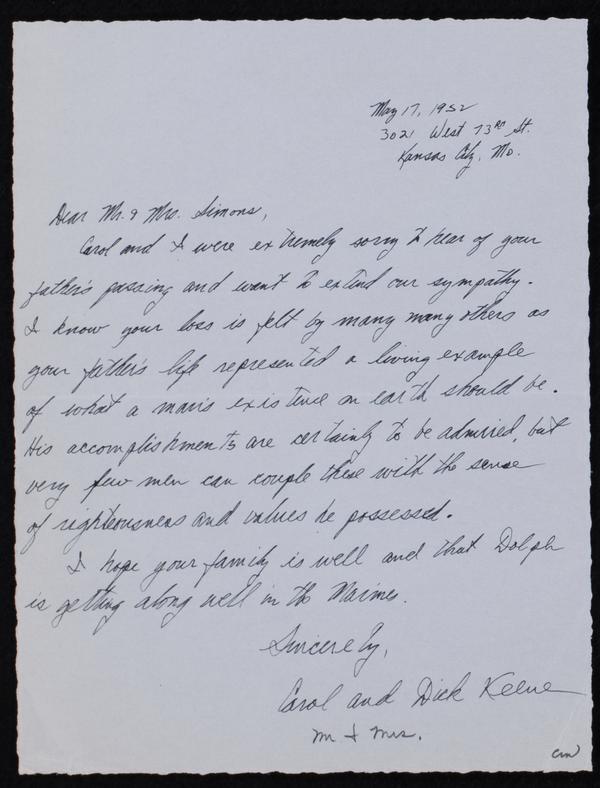 May 17, 1952
3021 West 73RD St.
Kansas City, Mo.
Dear Mr. & Mrs. Simons,
Carol and I were extremely sorry to hear of your
father's passing and want to extend our sympathy.
I know your loss is felt by many many others as
your father's life represented a living example
of what a man's existence on earth should be.
His accomplishments are certainly to be admired, but
very few men can couple these with the sense
of righteousness and values he possessed.
I hope your family is well and that Dolph
is getting along well in the Marines.
Sincerely,
Carol and Dick Keene
Mr & Mrs.